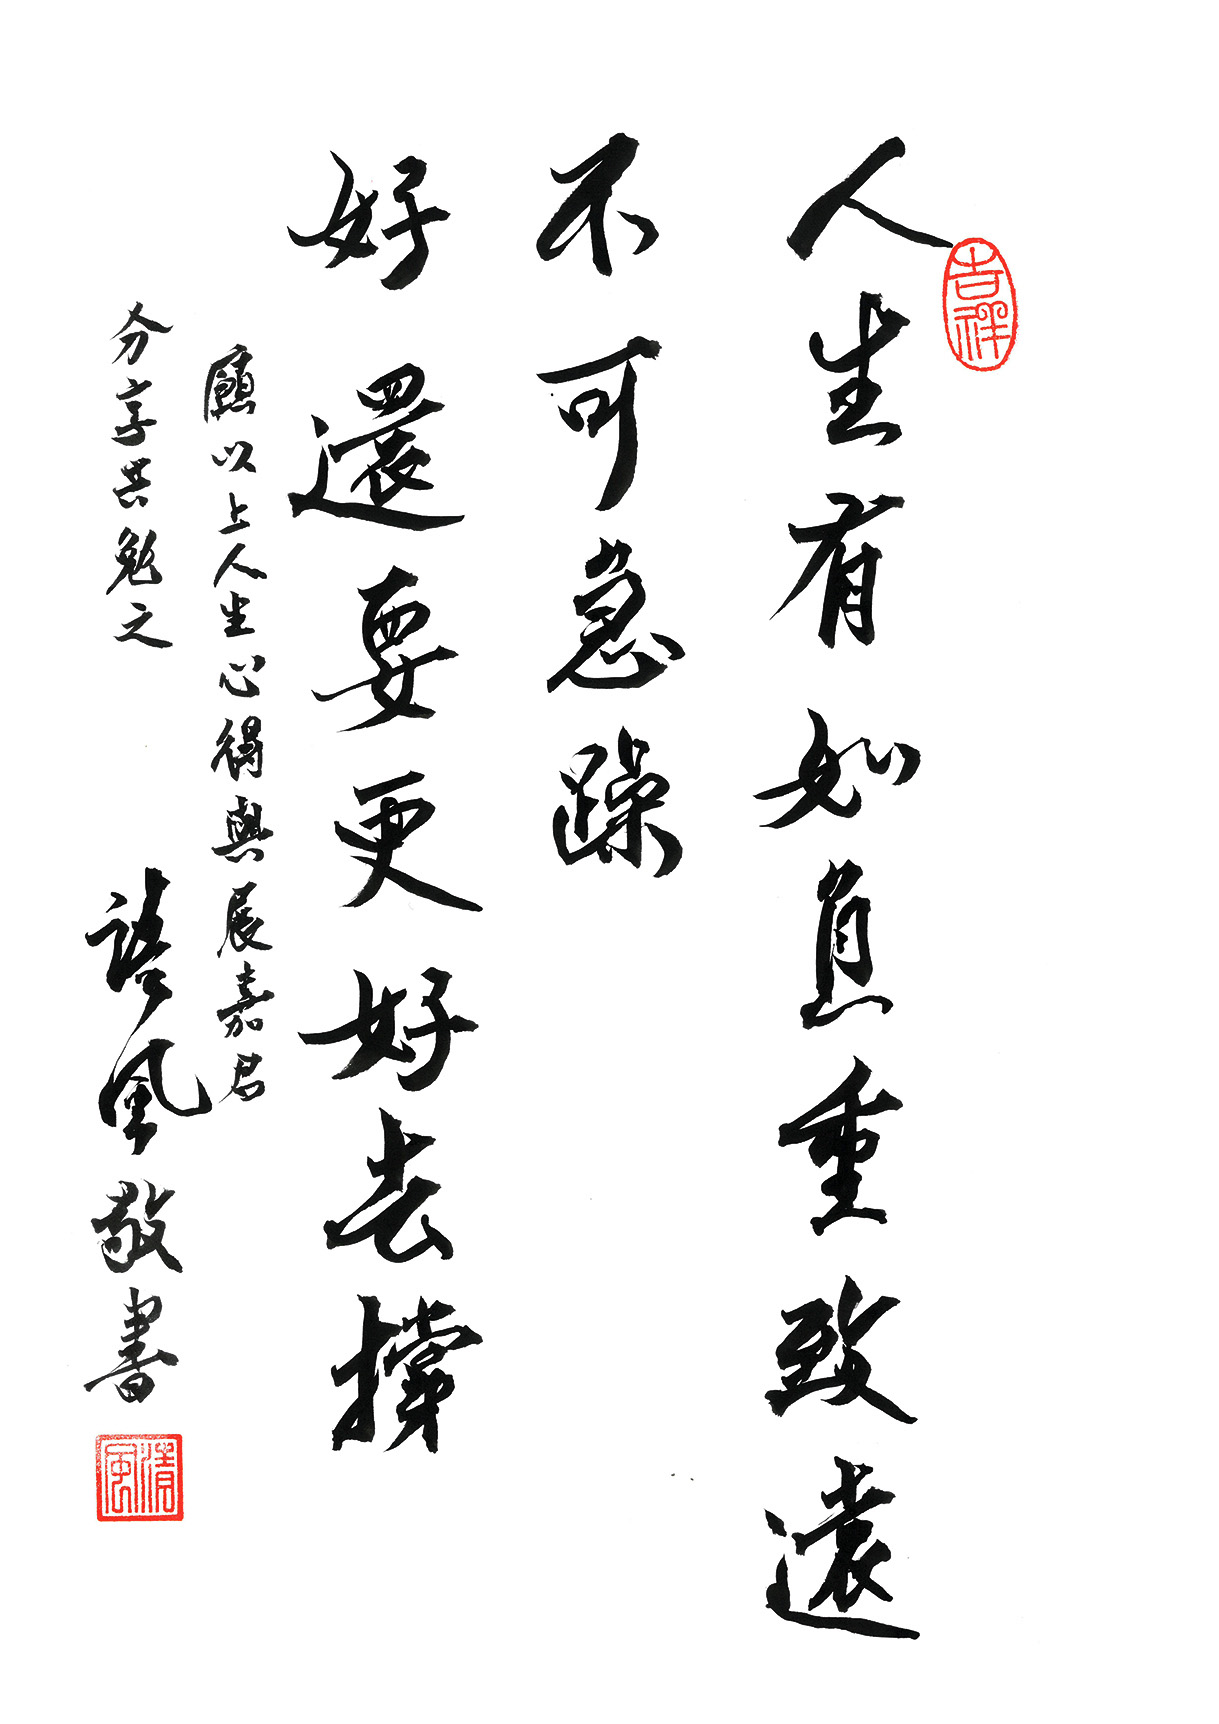 吉祥
人生有如負重致遠
不可急躁
好還要更好去撐
願以上人生心得與展嘉君
分享共勉之
風敬書
清風